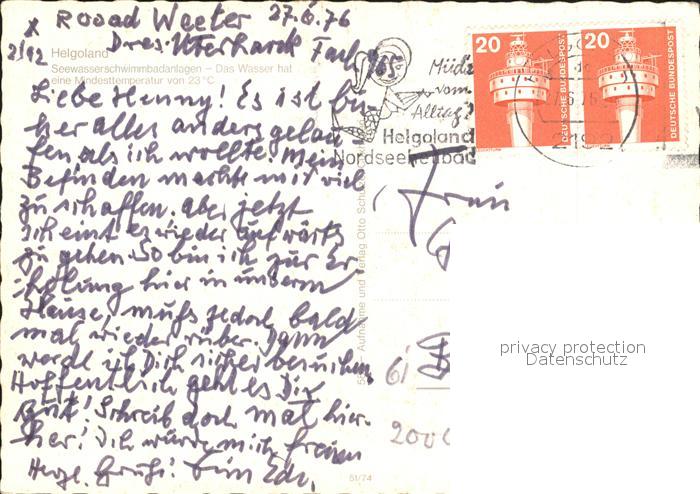 27.6.76
Helgoland
Seewasserschwimmbadanlagen – Das Wasser hat
eine Mindesttemperatur von 23 °C
Liebe Henny! Es ist bis-
her alles anders gelau
fen als ich wollte. Mein
Befinden machte mir viel
zu schaffen, aber jetzt
scheint es wieder aufwärts
zu gehen. So bin ich zur Er
holung hier in unserm
Hause, muß jedoch bald
mal wieder rüber. Dann
werde ich Dich sicher besuchen.
Hoffentlich geht es Dir
gut! Schreib doch mal hier-
her! Ich würde mich freuen
Herzl. Gruß!
Müde
vom
Alltag?
Helgoland
Nordseeheilbad
20
DEUTSCHE BUNDESPOST
20
DEUTSCHE BUNDESPOST
2192
Aufnahme und Verlag Otto
Frau
200
51/74
privacy protection
Datenschutz